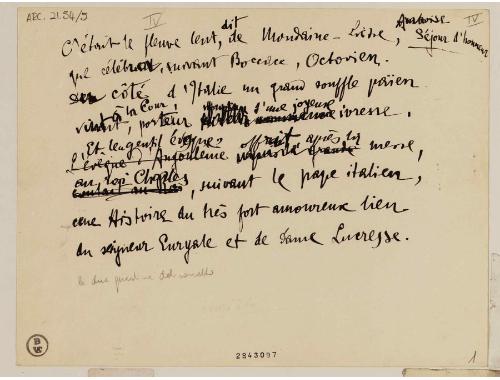 ARC. 21.54/5
IV
IV
C'était le fleuve lent, dit de Mondaine-Liesse,
Amboise
Séjour d'honneur
que célébrait, suivant Boccace, Octovien.
côté d'Italie un grand souffle païen
à la Cour!
vint, porteur d'une joyeuse ivresse.
Et
L'évêque d'Angoulême offrait après la messe,
au roi Charles, suivant le pape italien,
une Histoire du très fort amoureux lien
du seigneur Euryale et de Dame Lucresse.
2843097
1